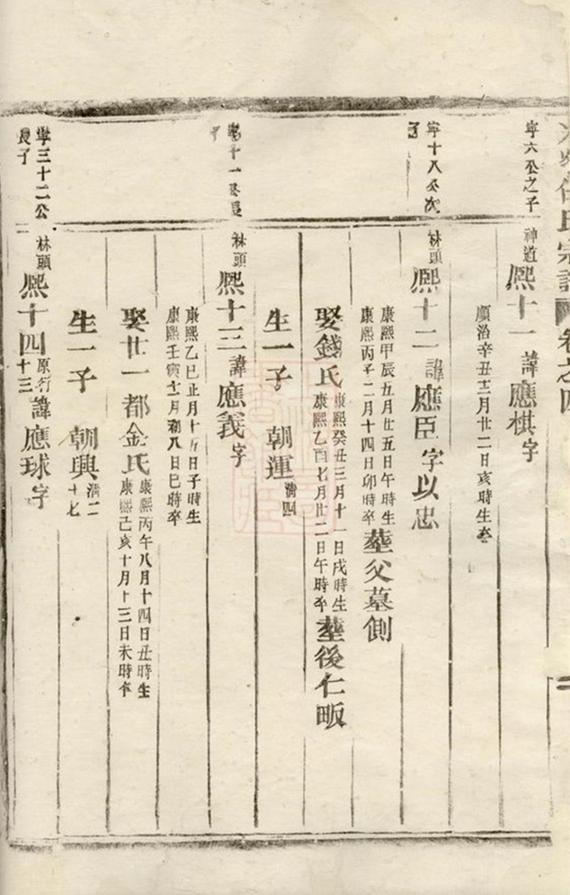 氏宗譜 卷之四
寧六公之子
神道 熙十一 諱應棋字
順治辛丑十二月廿二日亥時生卒
寧十八公次子
林頭 熙十二 諱應臣字以忠
康熙甲辰五月廿五日午時生
康熙丙子二月十四日卯時卒 塟父墓側
娶錢氏 康熙癸丑三月十一日戌時生
康熙乙酉七月廿二日午時卒 塟後仁畈
生一子 朝運 淸四
林頭 熙十三 諱應義字
康熙乙巳正月十五日子時生
康熙壬寅十二月初八日巳時卒
娶廿一都金氏 康熙丙午八月十四日丑時生
康熙己亥十月十三日未時卒
生一子 朝興 淸二十七
寧三十二公長子
林頭 熙十四 原行十三 諱應球字